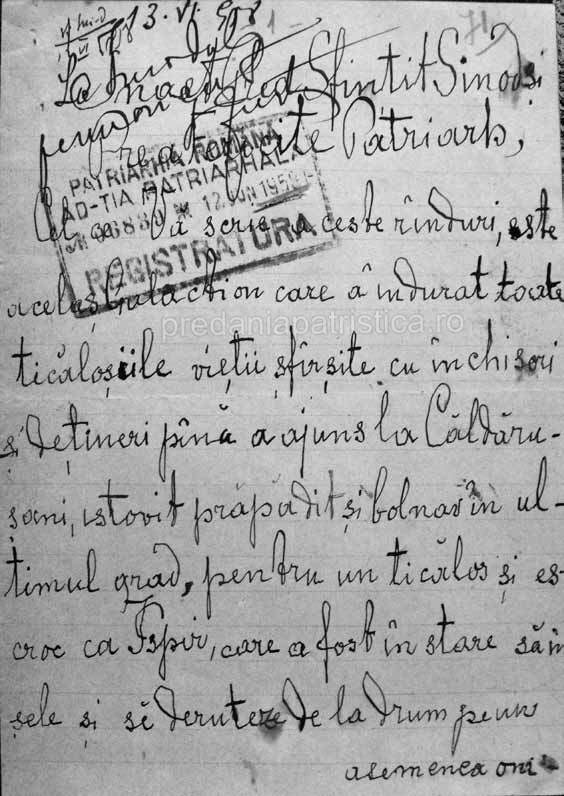 13.VI.
La Înaet Pred Sfîntit Sinod și
Prea Fericite Patriarh,
PATRIARHIA ROMÂNĂ
AD-TIA PATRIARHALĂ
12 IUN 195
REGISTRATURA
Cel ce Vă scrie aceste rînduri, este
acelaș Galaction care a îndurat toate
ticăloșiile vieții sfîrșite cu închisori
și dețineri pînă a ajuns la Căldăru-
șani, istovit prăpădit și bolnav în ul-
timul grad, pentru un ticălos și es-
croc ca Ispir, care a fost în stare să în
șele și să deruteze de la drum pe un
asemenea om
predaniapatristica.ro